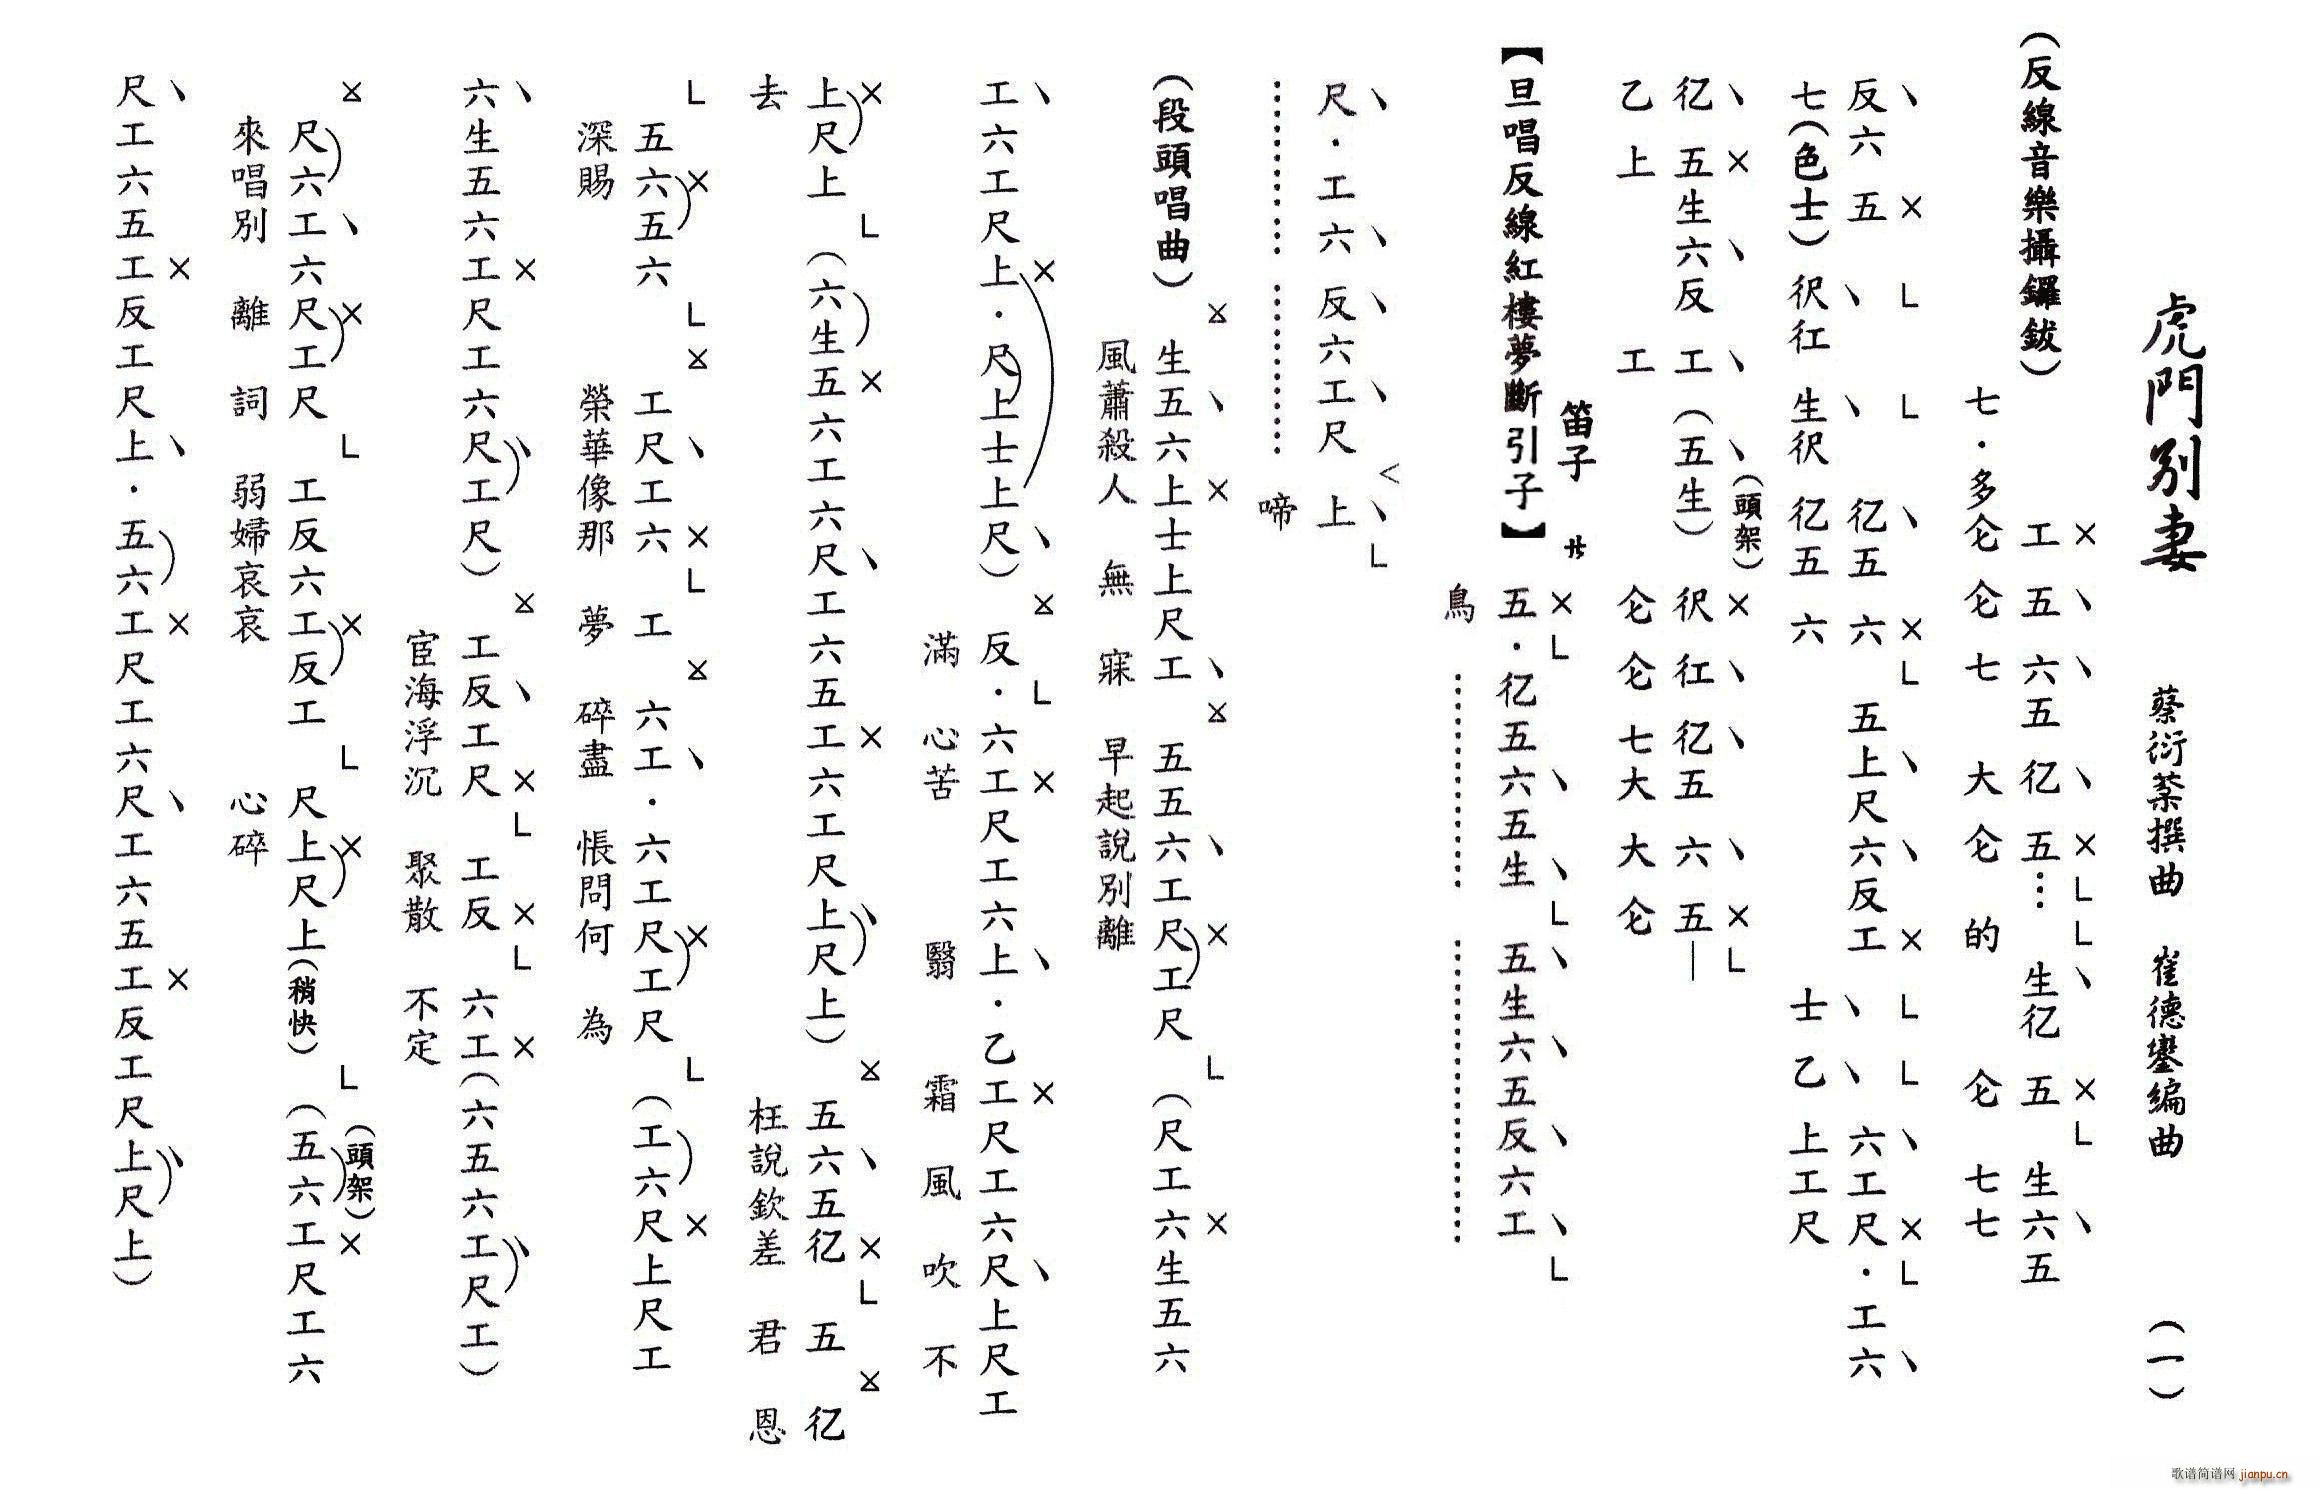 虎門別妻 蔡衍棻撰曲 崔德鑾編曲 (一)
(反線音樂攝鑼鈸)
工五六五伬五…生伬五生六五
七·多仑仑七大仑的仑七七
反六五 伬五六五上尺六反工六工尺·工六
七(色士)伬仜生伬伬五六士乙上工尺
(頭架)
五生六反工(五生)伬仜伬五六五—
乙上工仑仑七大大仑
笛子 サ
【旦唱反線紅樓夢斷引子】五·伬五六五生五生六五反六工
鳥
尺·工六反六工尺上
啼
(段頭唱曲)生五六上士上尺工五五六工尺工尺(尺工六生五六
風蕭殺人無寐早起說別離
工六工尺上·尺上士上尺)反·六工尺工六上·乙工尺工六尺上尺工
滿心苦翳霜風吹不
上尺上(六生五六工六尺工六五工六工尺上尺上)五六五伬五伬
去枉說欽差君恩
五六五六工尺工六工六工·六工尺工尺(工六尺上尺工
深賜榮華像那夢碎盡悵問何為
六生五六工尺工六尺工尺)工反工尺工反六工(六五六工尺工)
宦海浮沉聚散不定
尺六工六尺工尺工反六工反工尺上尺上(稍快)(五六工尺工六
(頭架)
來唱別離詞弱婦哀哀心碎
尺工六五工反工尺上·五六工尺工六尺工六五工反工尺上尺上)
歌谱简谱网 jianpu.cn